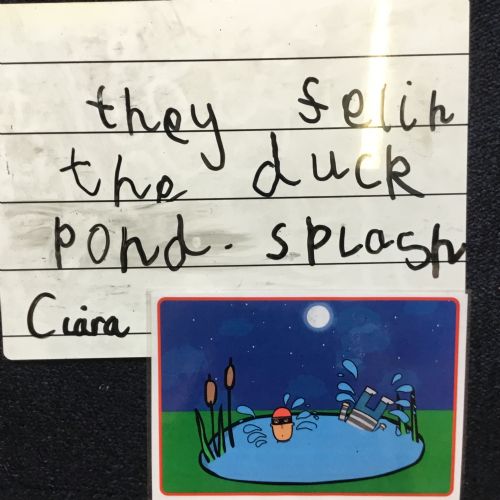 they felin
the duck
pond. splash
Ciara